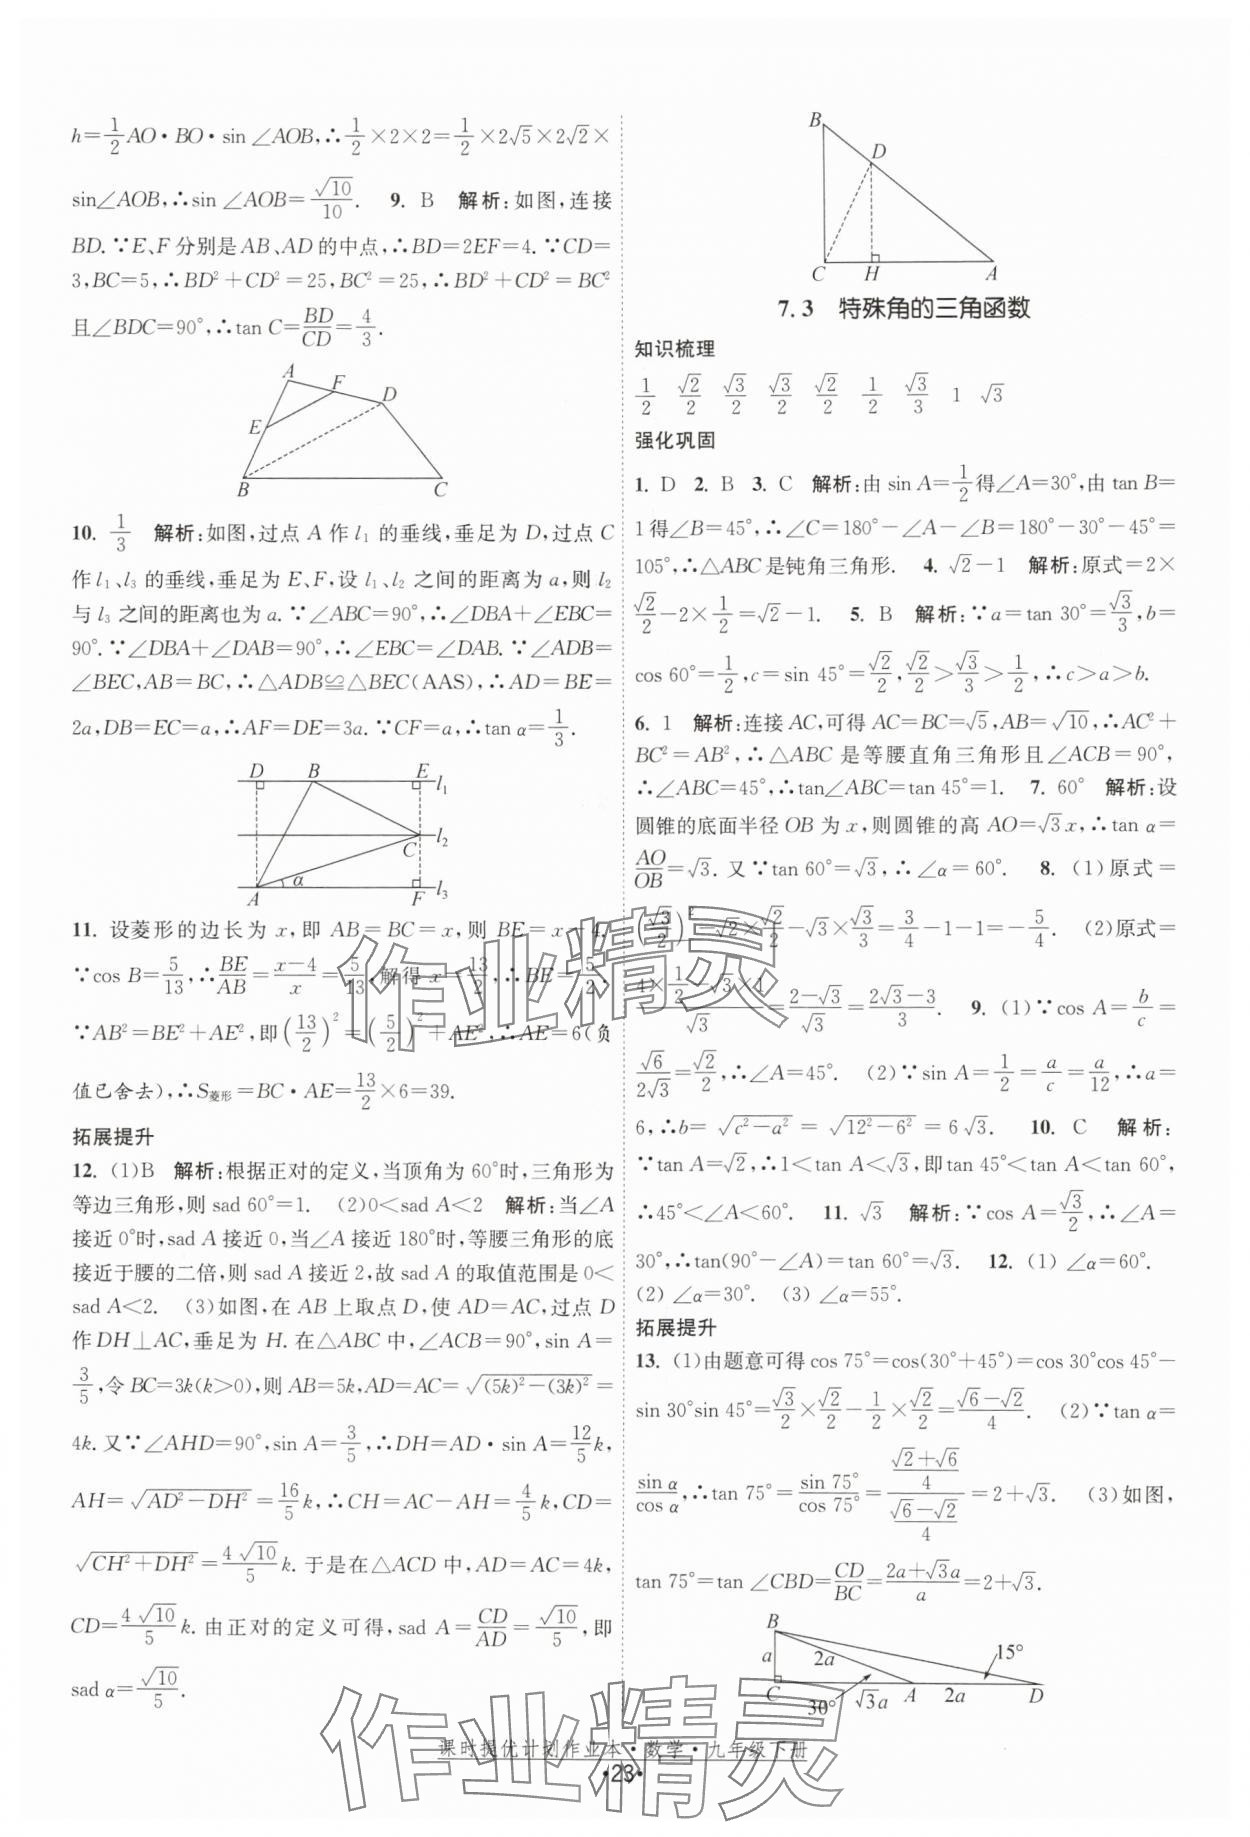 h=1/2AO·BO·sin∠AOB,∴1/2×2×2=1/2×2√5×2√2×
sin∠AOB,∴sin∠AOB=√10/10. 9. B 解析:如图,连接
BD.∵E、F分别是AB、AD的中点,∴BD=2EF=4.∵CD=
3,BC=5,∴BD²+CD²=25,BC²=25,∴BD²+CD²=BC²
且∠BDC=90°,∴tan C=BD/CD=4/3.
A
F
D
E
B
C
10. 1/3 解析:如图,过点A作l₁的垂线,垂足为D,过点C
作l₁、l₃的垂线,垂足为E、F,设l₁、l₂之间的距离为a,则l₂
与l₃之间的距离也为a.∵∠ABC=90°,∴∠DBA+∠EBC=
90°.∵∠DBA+∠DAB=90°,∴∠EBC=∠DAB.∵∠ADB=
∠BEC,AB=BC,∴△ADB≌△BEC(AAS),∴AD=BE=
2a,DB=EC=a,∴AF=DE=3a.∵CF=a,∴tan α=1/3.
D B E l₁
C l₂
α
A F l₃
11. 设菱形的边长为x,即AB=BC=x,则BE=x-4,
∵cos B=5/13,∴BE/AB=(x-4)/x=5/13,解得x=13/2,∴BE=5/2,
∵AB²=BE²+AE²,即(13/2)²=(5/2)²+AE²,∴AE=6(负
值已舍去),∴S菱形=BC·AE=13/2×6=39.
拓展提升
12. (1)B 解析:根据正对的定义,当顶角为60°时,三角形为
等边三角形,则sad 60°=1. (2)0<sad A<2 解析:当∠A
接近0°时,sad A接近0,当∠A接近180°时,等腰三角形的底
接近于腰的二倍,则sad A接近2,故sad A的取值范围是0<
sad A<2. (3)如图,在AB上取点D,使AD=AC,过点D
作DH⊥AC,垂足为H.在△ABC中,∠ACB=90°,sin A=
3/5,令BC=3k(k>0),则AB=5k,AD=AC=√((5k)²-(3k)²)=
4k.又∵∠AHD=90°,sin A=3/5,∴DH=AD·sin A=12/5k,
AH=√(AD²-DH²)=16/5k,∴CH=AC-AH=4/5k,CD=
√(CH²+DH²)=4√10/5k.于是在△ACD中,AD=AC=4k,
CD=4√10/5k.由正对的定义可得,sad A=CD/AD=√10/5,即
sad α=√10/5.
B
D
C H A
7.3 特殊角的三角函数
知识梳理
1/2 √2/2 √3/2 √3/2 √2/2 1/2 √3/3 1 √3
强化巩固
1. D 2. B 3. C 解析:由sin A=1/2得∠A=30°,由tan B=
1得∠B=45°,∴∠C=180°-∠A-∠B=180°-30°-45°=
105°,∴△ABC是钝角三角形. 4. √2-1 解析:原式=2×
√2/2-2×1/2=√2-1. 5. B 解析:∵a=tan 30°=√3/3,b=
cos 60°=1/2,c=sin 45°=√2/2,√2/2>√3/3>1/2,∴c>a>b.
6. 1 解析:连接AC,可得AC=BC=√5,AB=√10,∴AC²+
BC²=AB²,∴△ABC是等腰直角三角形且∠ACB=90°,
∴∠ABC=45°,∴tan∠ABC=tan 45°=1. 7. 60° 解析:设
圆锥的底面半径OB为x,则圆锥的高AO=√3x,∴tan α=
AO/OB=√3.又∵tan 60°=√3,∴∠α=60°. 8. (1)原式=
(√3/2)²-√2×√2/2-√3×√3/3=3/4-1-1=-5/4. (2)原式=
(4×1/2-√3×1)/√3=(2-√3)/√3=(2√3-3)/3. 9. (1)∵cos A=b/c=
√6/2√3=√2/2,∴∠A=45°. (2)∵sin A=1/2=a/c=a/12,∴a=
6,∴b=√(c²-a²)=√(12²-6²)=6√3. 10. C 解析:
∵tan A=√2,∴1<tan A<√3,即tan 45°<tan A<tan 60°,
∴45°<∠A<60°. 11. √3 解析:∵cos A=√3/2,∴∠A=
30°,∴tan(90°-∠A)=tan 60°=√3. 12. (1)∠α=60°.
(2)∠α=30°. (3)∠α=55°.
拓展提升
13. (1)由题意可得cos 75°=cos(30°+45°)=cos 30°cos 45°-
sin 30°sin 45°=√3/2×√2/2-1/2×√2/2=(√6-√2)/4. (2)∵tan α=
sin α/cos α,∴tan 75°=sin 75°/cos 75°=((√2+√6)/4)/((√6-√2)/4)=2+√3. (3)如图,
tan 75°=tan∠CBD=CD/BC=(2a+√3a)/a=2+√3.
B
a 2a 15°
C 30° √3a A 2a D
作业精灵
作业精灵
课时提优计划作业本·数学·九年级下册
·23·